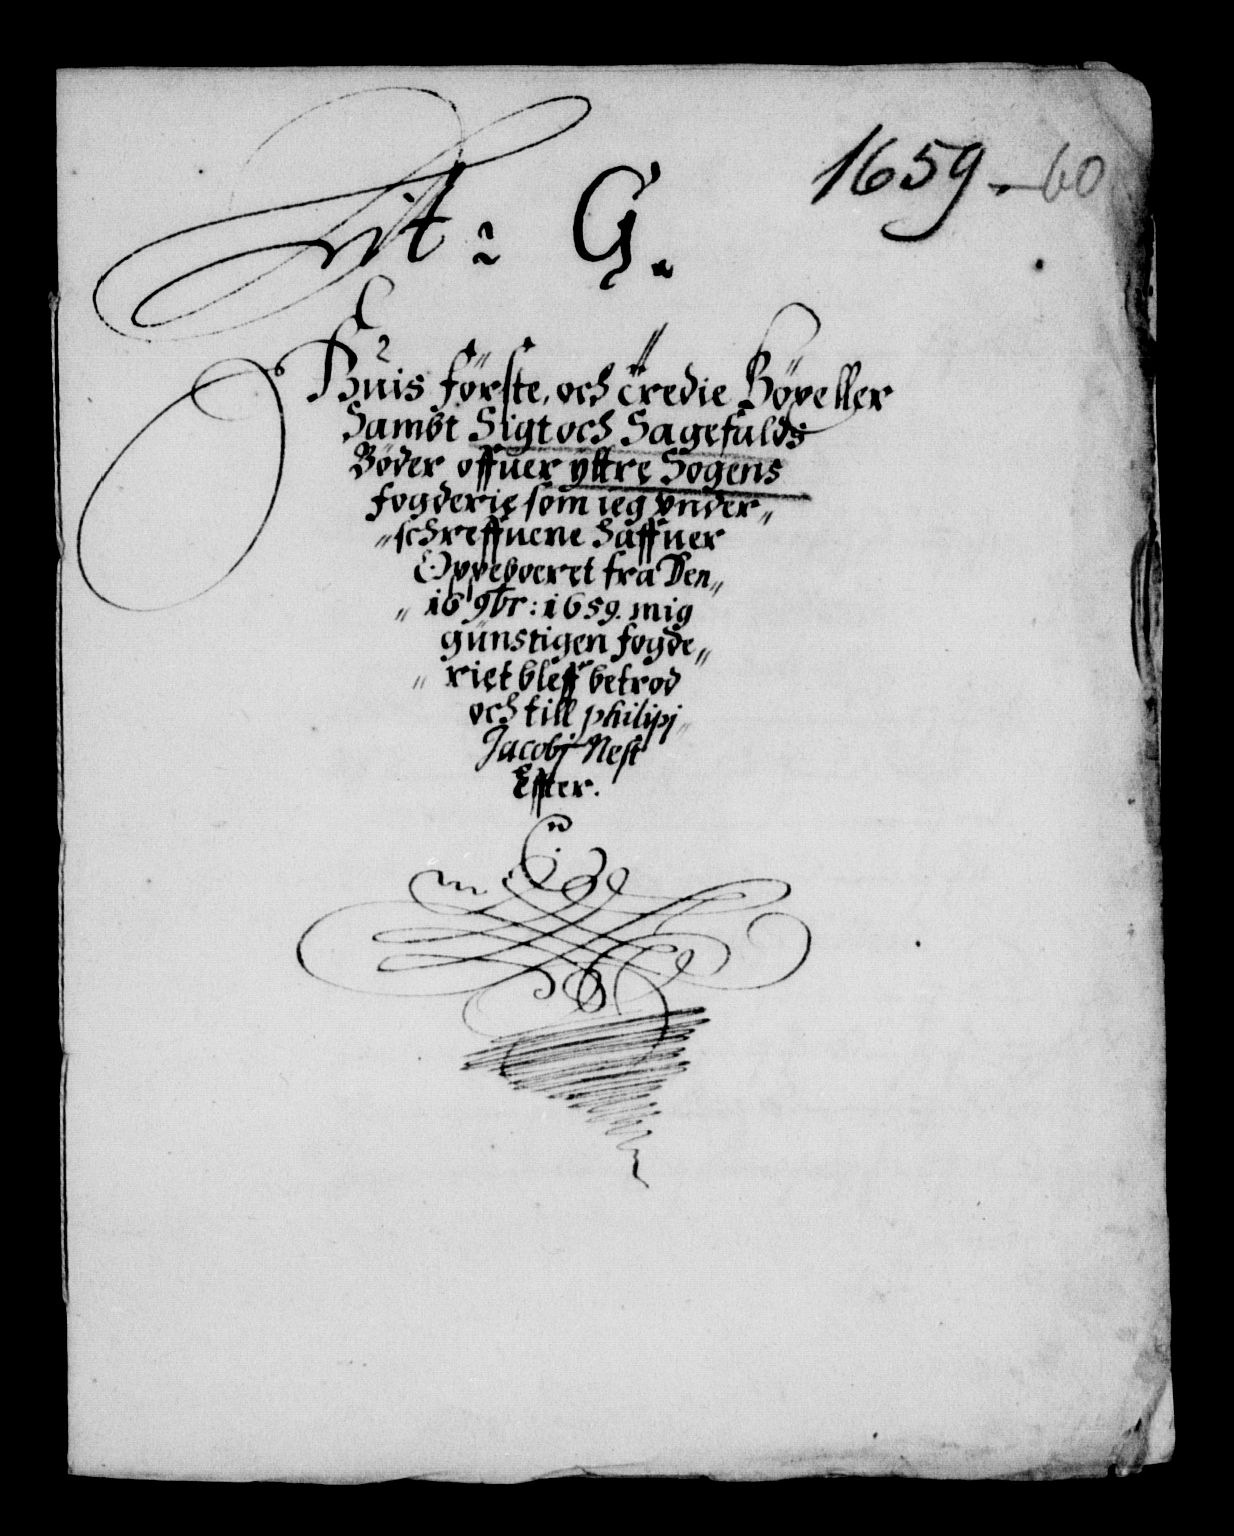 1659 - 60
Lit: G.
Huis förste, och tredie Böxeller
Sambt Sigt och Sagefalds
Böder offuer yttre Sogens
fogderie som ieg vnder„
„schreffuene haffuer
Oppeboeret fra Den„
„16 9br: 1659. mig
günstigen fogde„
„riet bleff betrod
och till philipj
Jacobj Nest
Effter.